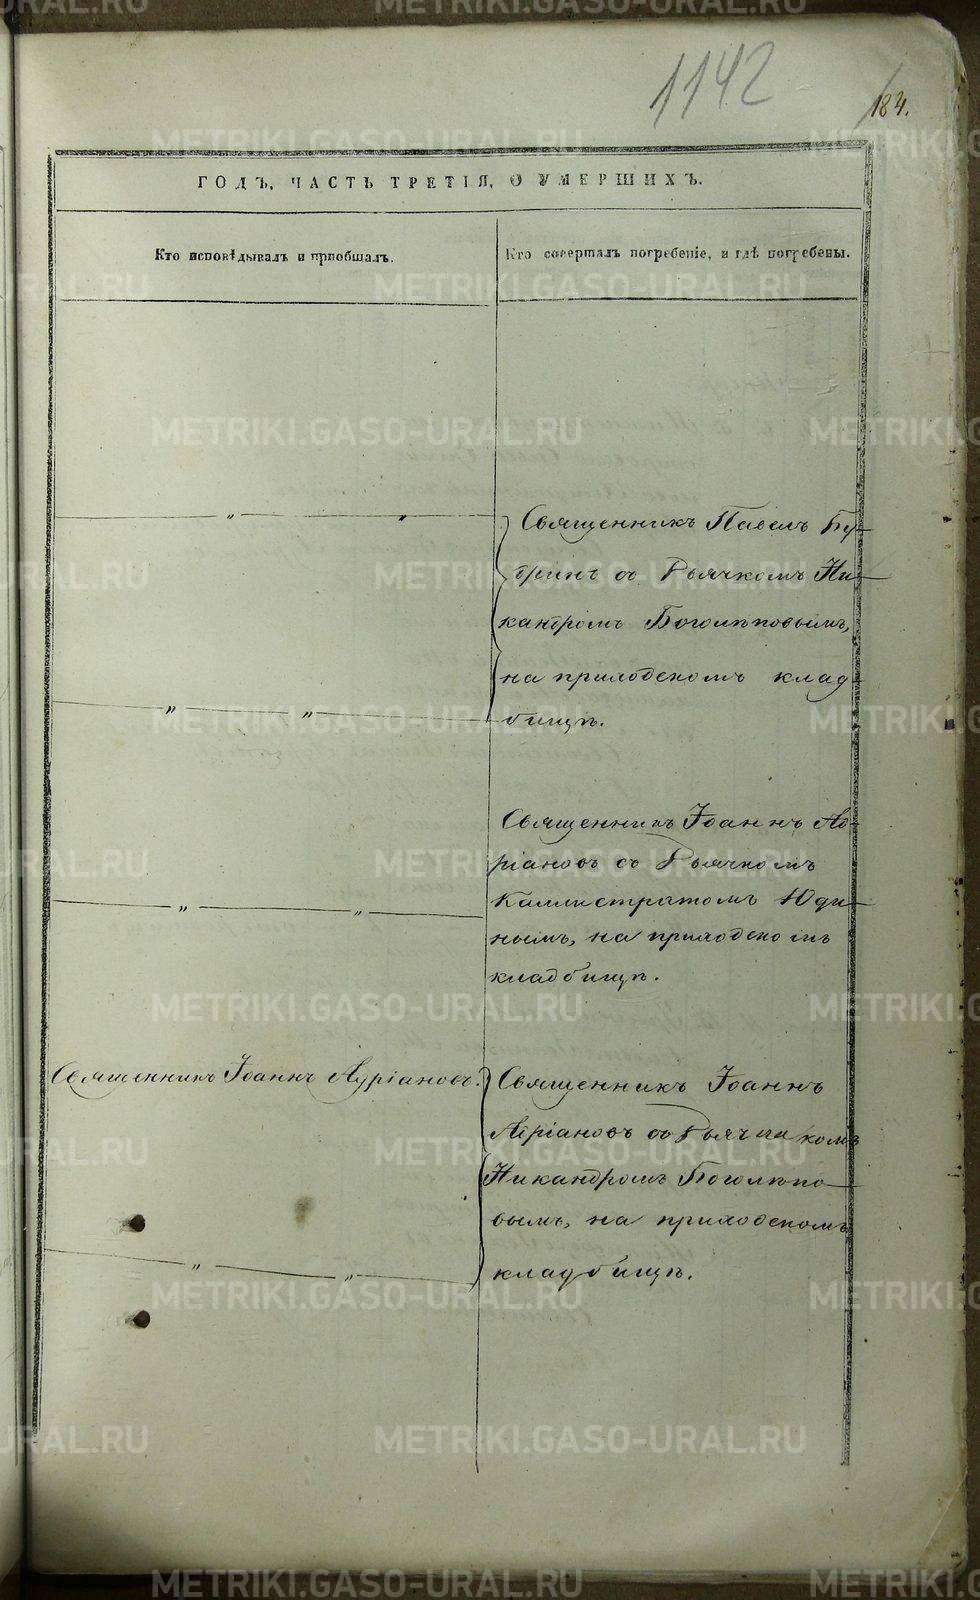 1142
184.
ГОДЪ, ЧАСТЬ ТРЕТІЯ, О УМЕРШИХЪ.
Кто исповѣдывалъ и пріобщалъ.
Кто совершалъ погребеніе, и гдѣ погребены.
„ „
Священникъ Павелъ Бу-
дринъ съ Дьячкомъ Ни-
кандромъ Боголѣповымъ,
на приходскомъ клад-
бищѣ.
„ „
Священникъ Іоаннъ Ад-
ріановъ съ Дьячкомъ
Каллистратомъ Юди-
нымъ, на приходскомъ
кладбищѣ.
„ „
Священникъ Іоаннъ Адріановъ.
Священникъ Іоаннъ
Адріановъ съ Дьячкомъ
Никандромъ Боголѣпо-
вымъ, на приходскомъ
кладбищѣ.
„ „
METRIKI.GASO-URAL.RU